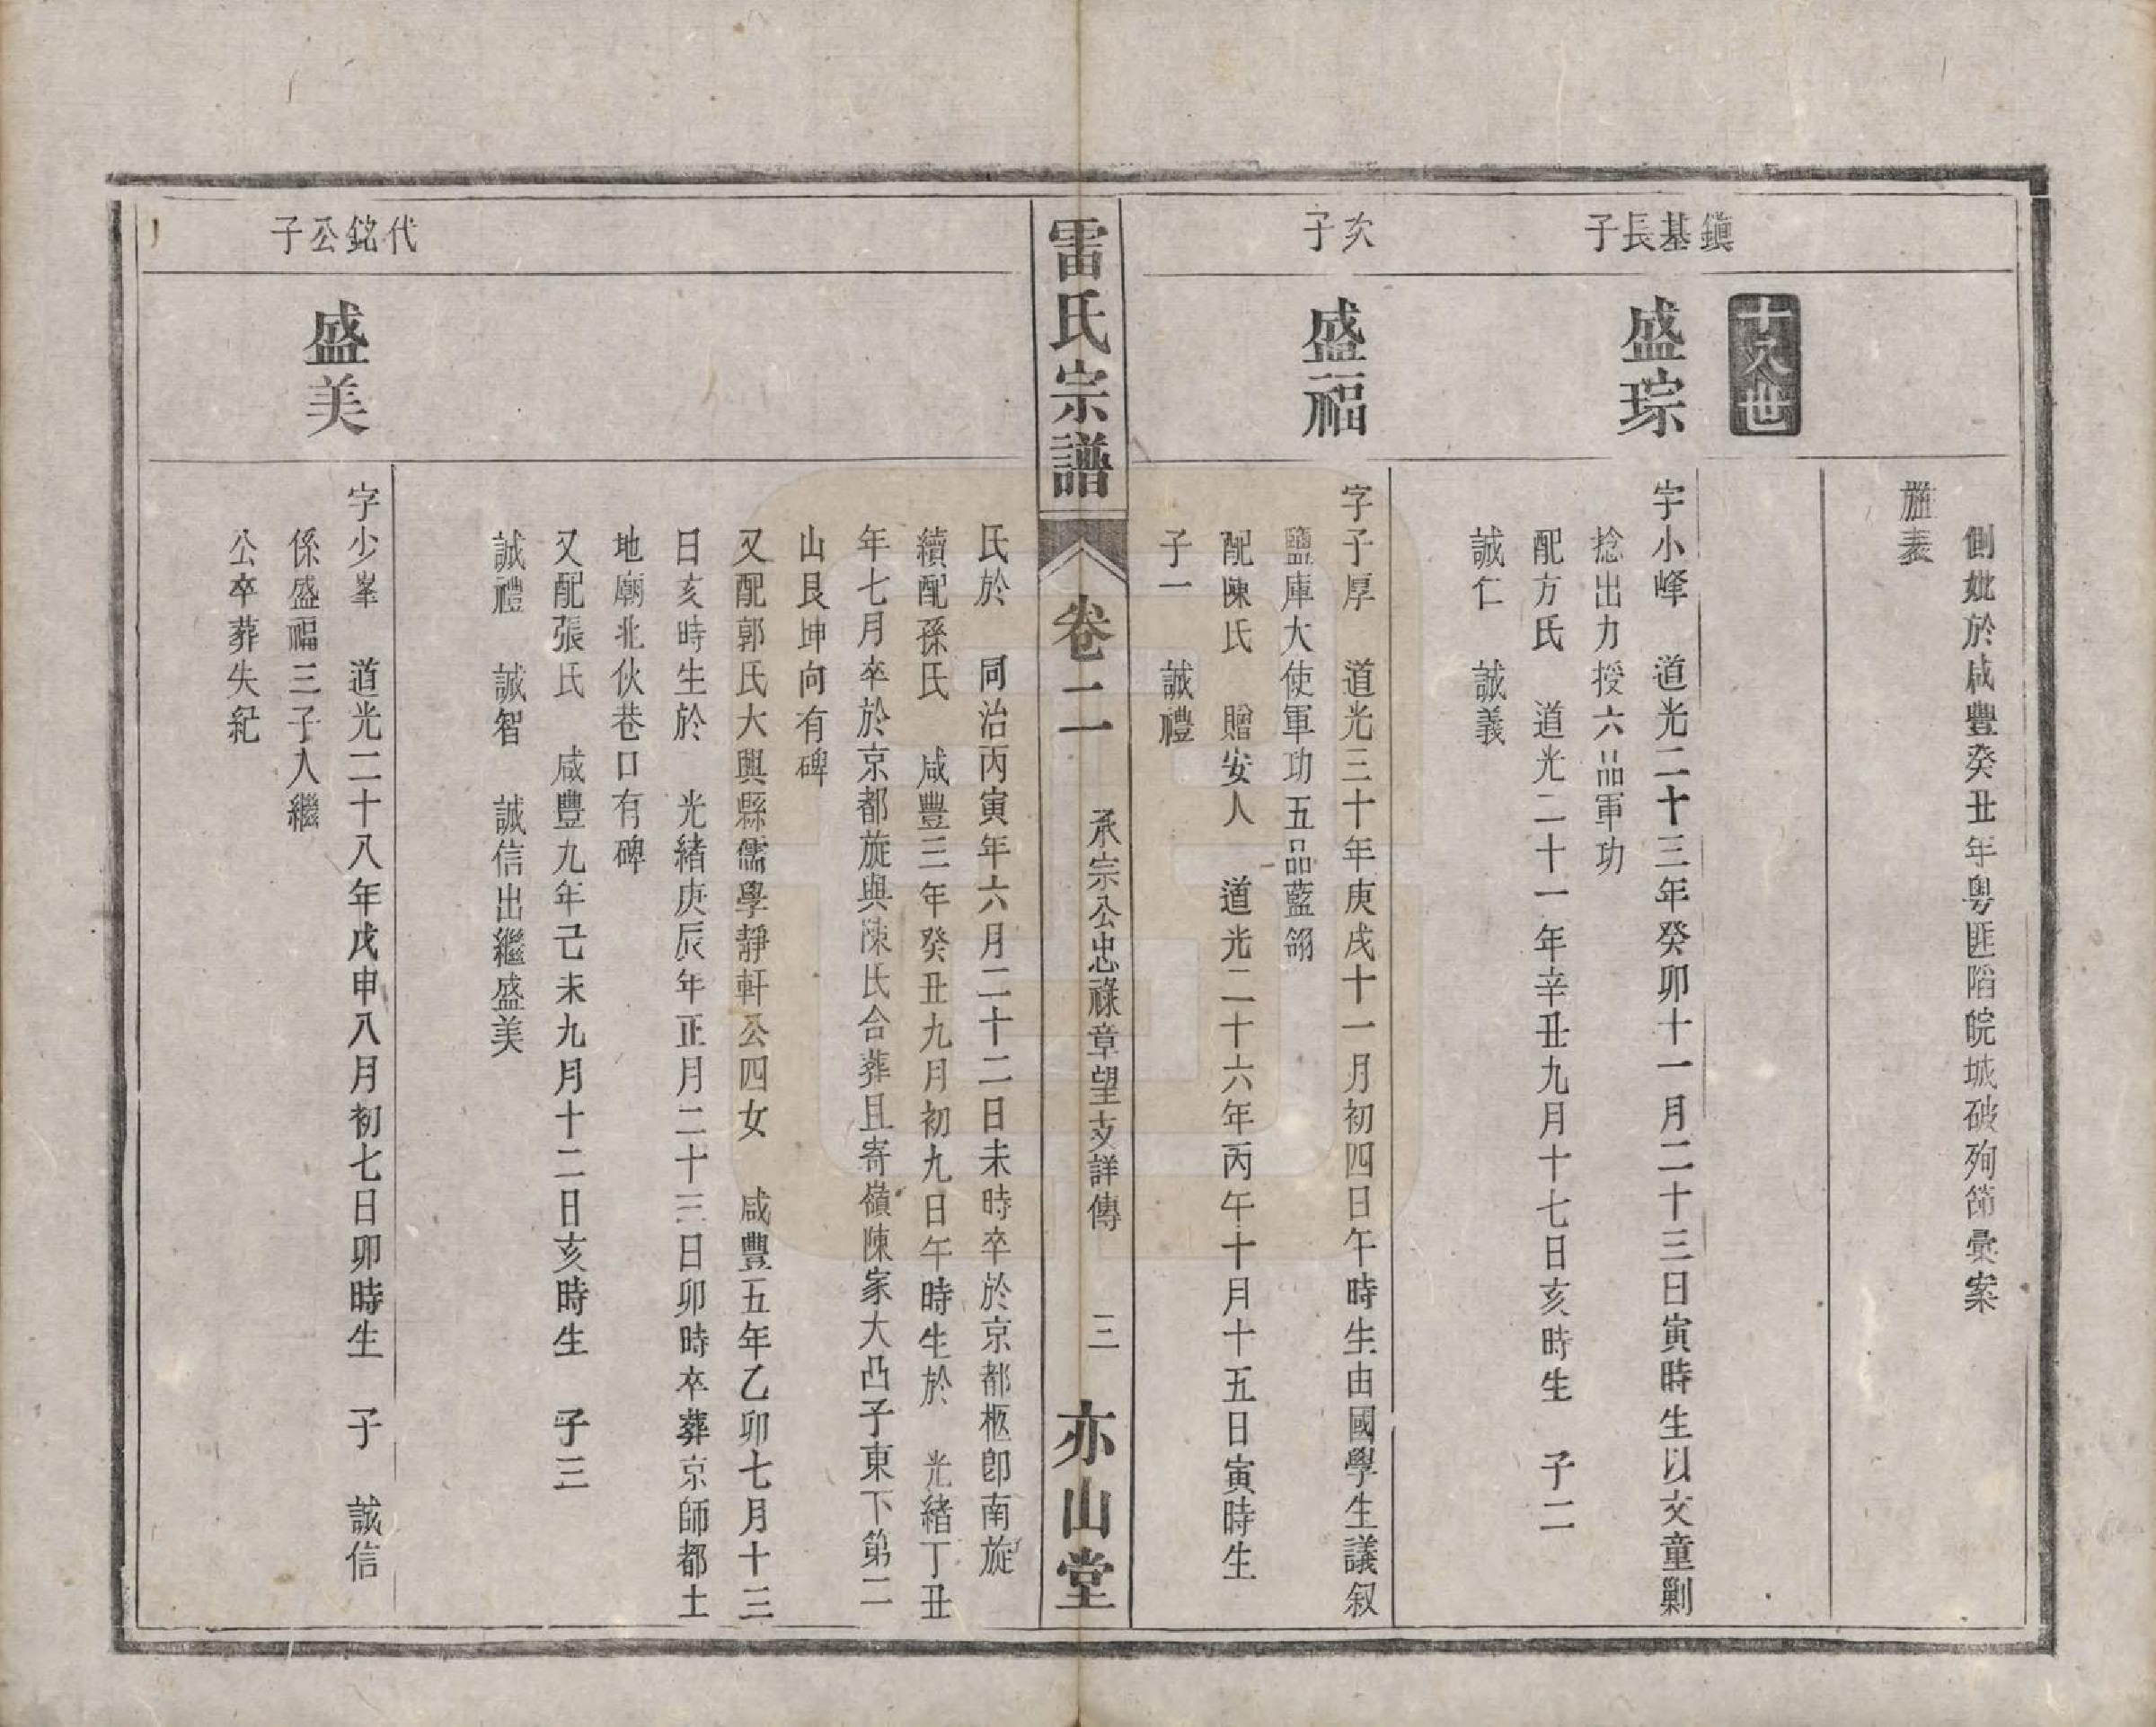 側妣於咸豐癸丑年粵匪陷皖城破殉節彙案
旌表
十九世
鎮基長子
盛琮
字小峄　道光二十三年癸卯十一月二十三日寅時生以文童剿
捻出力授六品軍功
配方氏　道光二十一年辛丑九月十七日亥時生　子二
誠仁　誠義
次子
盛福
字子厚　道光三十年庚戌十一月初四日午時生由國學生議叙
鹽庫大使軍功五品藍翎
配陳氏　贈安人　道光二十六年丙午十月十五日寅時生
子一　誠禮
雷氏宗譜　卷二　承宗公忠祿章望支詳傳　三　亦山堂
氏於　同治丙寅年六月二十二日未時卒於京都柩卽南旋
續配孫氏　咸豐三年癸丑九月初九日午時生於　光緒丁丑
年七月卒於京都旋與陳氏合葬且寄嶺陳家大凸子東下第二
山艮坤向有碑
又配郭氏大興縣儒學靜軒公四女　咸豐五年乙卯七月十三
日亥時生於　光緒庚辰年正月二十三日卯時卒葬京師都土
地廟北伙巷口有碑
又配張氏　咸豐九年己未九月十二日亥時生　子三
誠禮　誠智　誠信出繼盛美
代銘公子
盛美
字少峯　道光二十八年戊申八月初七日卯時生　子　誠信
係盛福三子入繼
公卒葬失紀